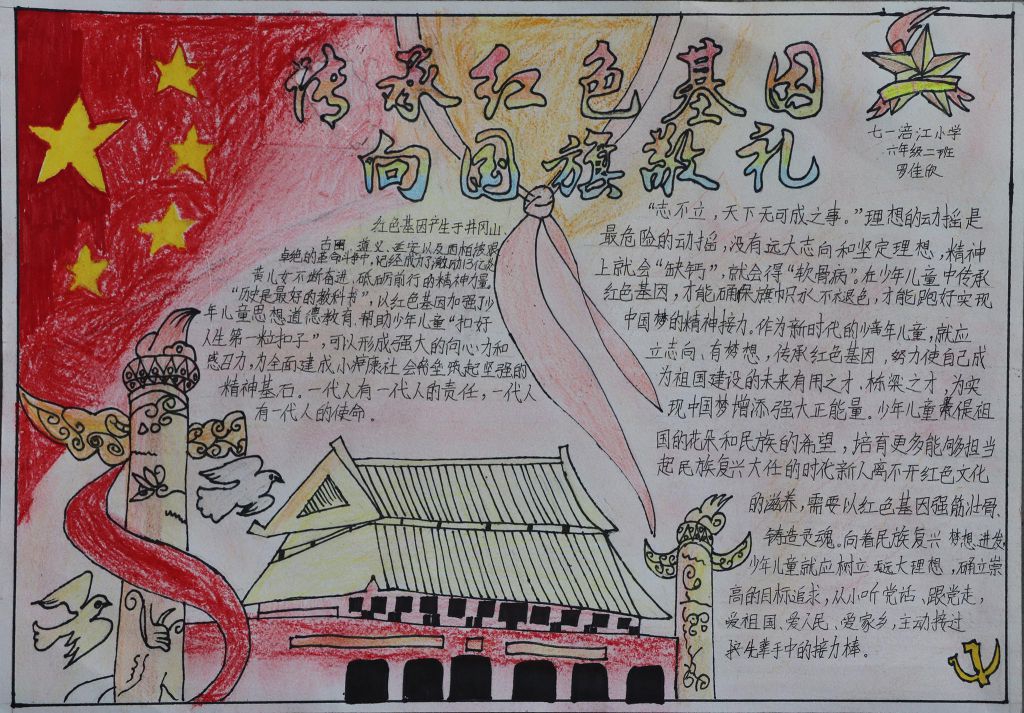 传承红色基因
向国旗敬礼
七一涪江小学
六年级二班
罗佳欣
红色基因产生于井冈山、
古田、遵义、延安以及西柏坡
卓绝的革命斗争中,已经成为了激励13亿炎
黄儿女不断奋进,砥砺前行的精神力量。
“历史是最好的教科书”,以红色基因加强少
年儿童思想道德教育,帮助少年儿童“扣好
人生第一粒扣子”,可以形成强大的向心力和
感召力,为全面建成小康社会构筑起坚强的
精神基石。一代人有一代人的责任,一代人
有一代人的使命。
“志不立,天下无可成之事。”理想的动摇是
最危险的动摇,没有远大志向和坚定理想,精神
上就会“缺钙”,就会得“软骨病”。在少年儿童中传承
红色基因,才能确保旗帜永不褪色,才能跑好实现
中国梦的精神接力。作为新时代的少年儿童,就应
立志向、有梦想,传承红色基因,努力使自己成
为祖国建设的未来有用之才、栋梁之才,为实
现中国梦增添强大正能量。少年儿童是祖
国的花朵和民族的希望,培育更多能够担当
起民族复兴大任的时代新人离不开红色文化
的滋养,需要以红色基因强筋壮骨、
铸造灵魂。向着民族复兴梦想进发,
少年儿童就应树立远大理想,确立崇
高的目标追求,从小听党话、跟党走,
爱祖国、爱人民、爱家乡,主动接过
先辈手中的接力棒。